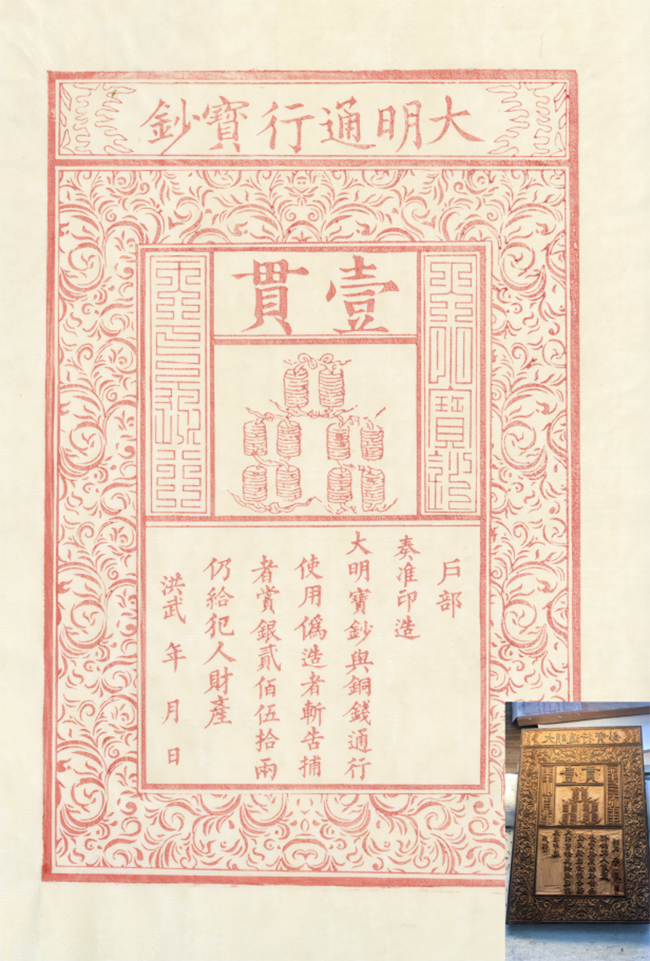 大明通行寶鈔
壹貫
戶部
奏准印造
大明寶鈔與銅錢通行
使用僞造者斬告捕
者賞銀貳佰伍拾兩
仍給犯人財產
洪武 年 月 日